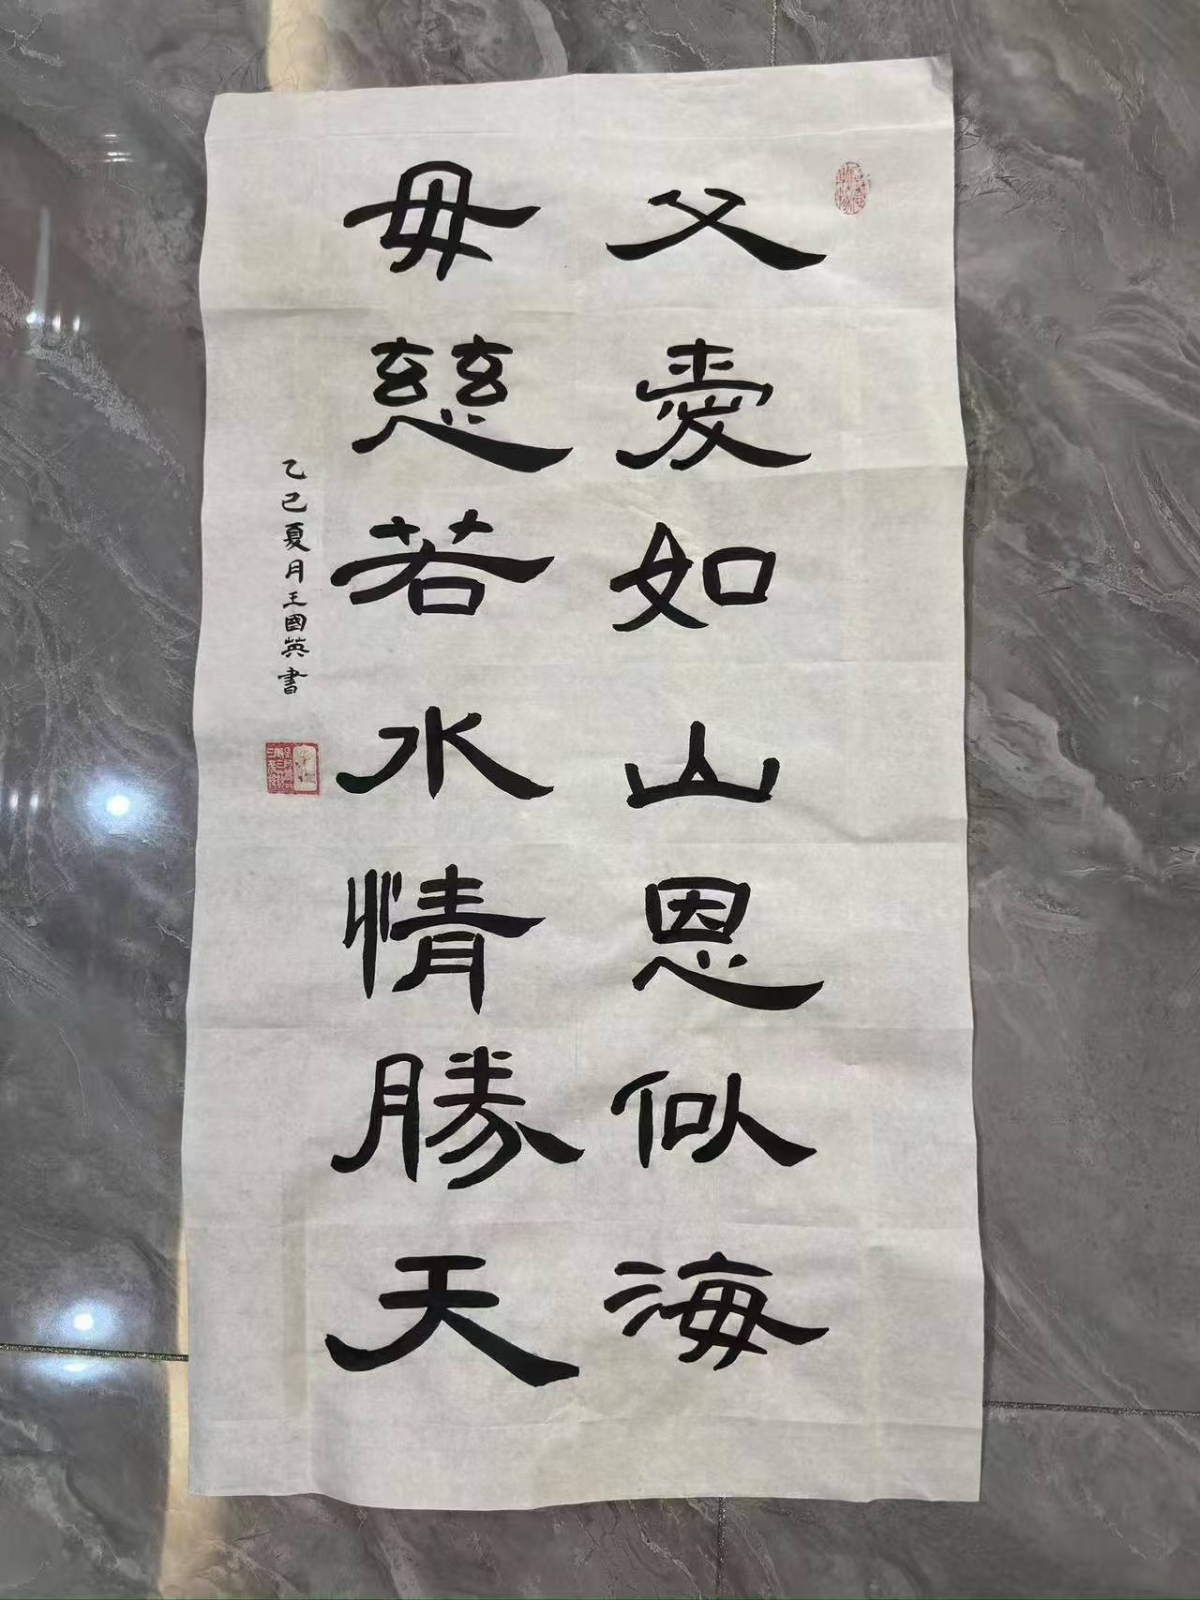 父愛如山恩似海
母慈若水情勝天
乙巳夏月王國英書